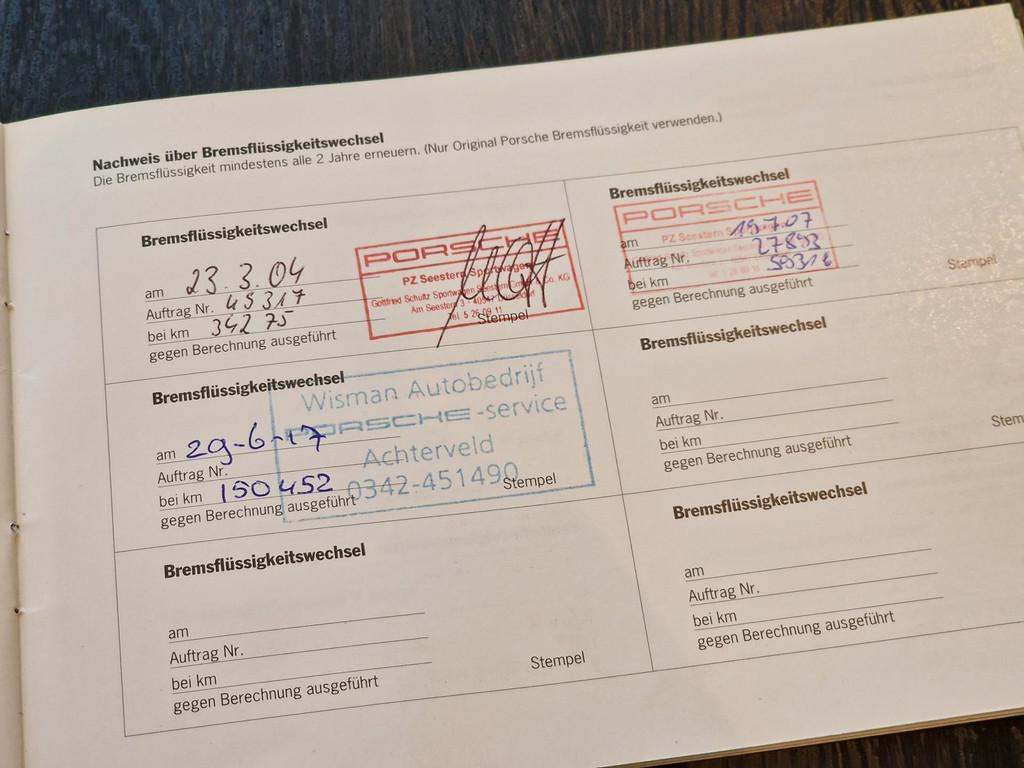 Nachweis über Bremsflüssigkeitswechsel
Die Bremsflüssigkeit mindestens alle 2 Jahre erneuern. (Nur Original Porsche Bremsflüssigkeit verwenden.)
Bremsflüssigkeitswechsel
am 23.3.04
Auftrag Nr. 45317
bei km 34275
gegen Berechnung ausgeführt
PORSCHE
PZ Seestern Sportwagen
Gottfried Schultz Sportwagen Seestern Co. KG
Am Seestern 3 - 40547
Tel. 5 26 09 11
Stempel
Bremsflüssigkeitswechsel
PORSCHE
PZ Seestern
am 19.7.07
Auftrag Nr. 27893
bei km
gegen Berechnung ausgeführt
Stempel
Bremsflüssigkeitswechsel
am 29-6-17
Auftrag Nr.
bei km 150452
gegen Berechnung ausgeführt
Wisman Autobedrijf
PORSCHE-service
Achterveld
0342-451490
Stempel
Bremsflüssigkeitswechsel
am
Auftrag Nr.
bei km
gegen Berechnung ausgeführt
Stem
Bremsflüssigkeitswechsel
am
Auftrag Nr.
bei km
gegen Berechnung ausgeführt
Stempel
Bremsflüssigkeitswechsel
am
Auftrag Nr.
bei km
gegen Berechnung ausgeführt